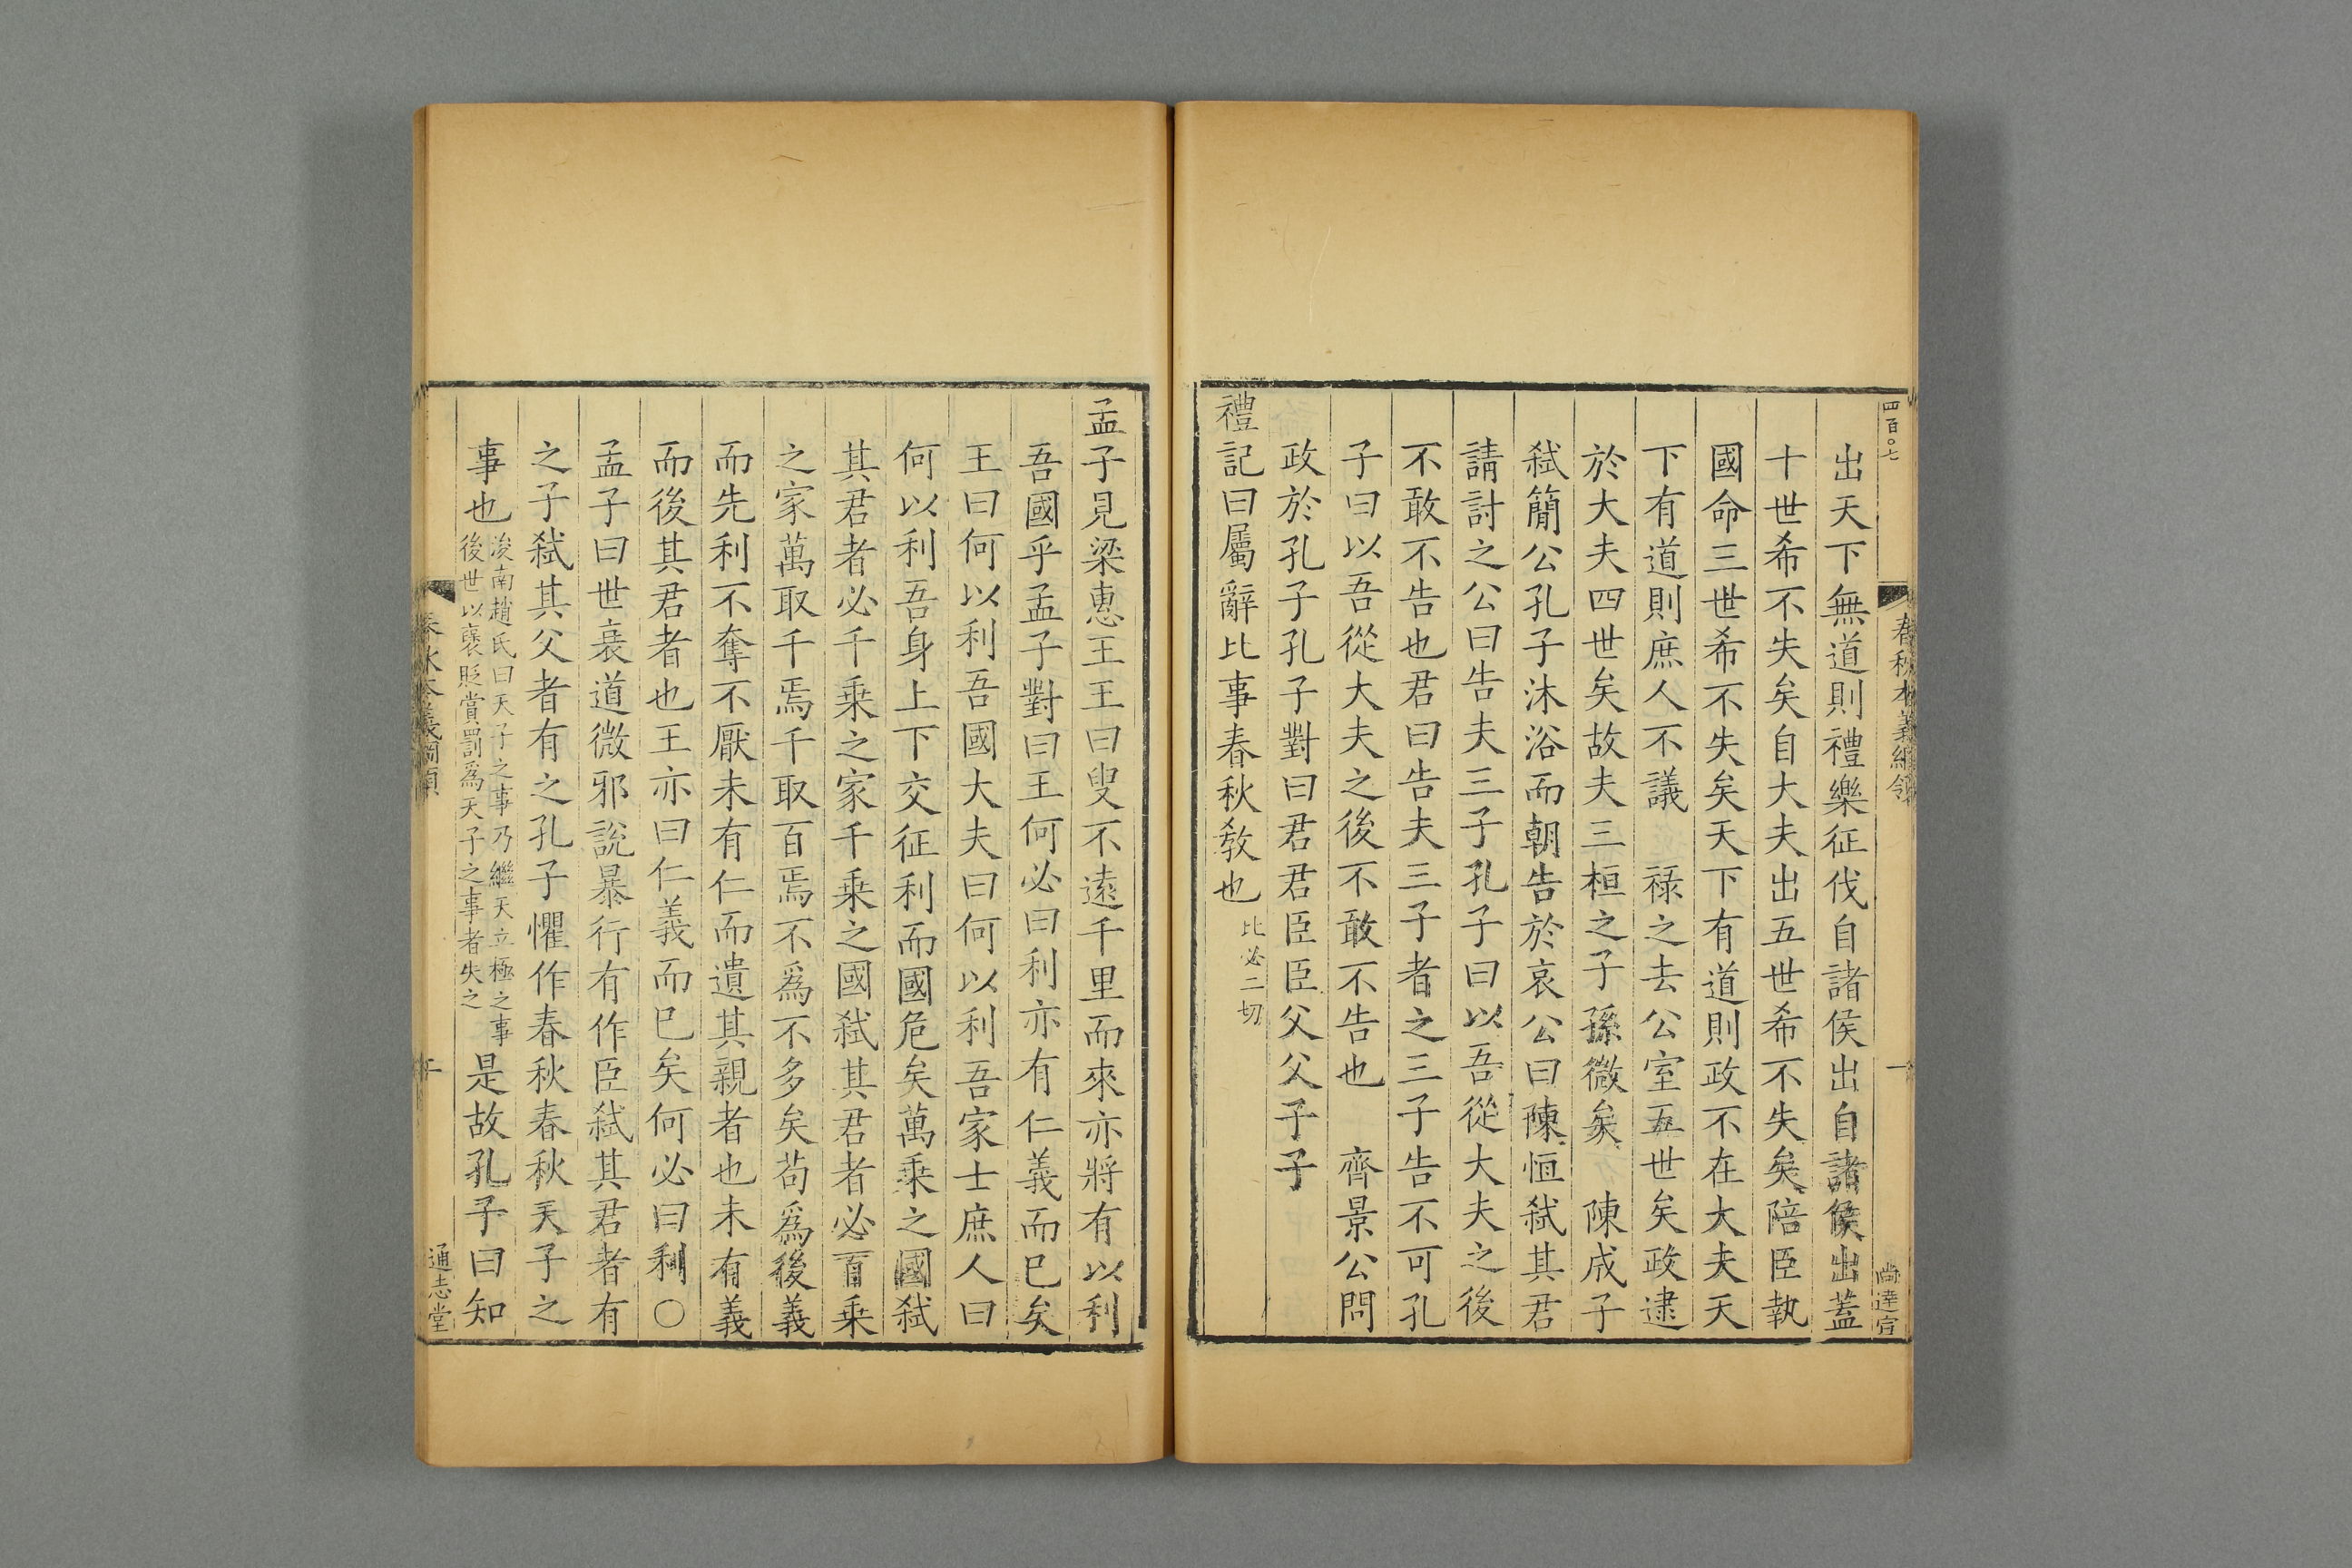 四百〇七
出天下無道則禮樂征伐自諸侯出自諸侯出蓋
十世希不失矣自大夫出五世希不失矣陪臣執
國命三世希不失矣天下有道則政不在大夫天
下有道則庶人不議　祿之去公室五世矣政逮
於大夫四世矣故夫三桓之子孫微矣　陳成子
弑簡公孔子沐浴而朝告於哀公曰陳恒弑其君
請討之公曰告夫三子孔子曰以吾從大夫之後
不敢不告也君曰告夫三子者之三子告不可孔
子曰以吾從大夫之後不敢不告也　齊景公問
政於孔子孔子對曰君君臣臣父父子子
禮記曰屬辭比事春秋敎也比必二切
春秋本義綱領
一
尚達宣
孟子見梁惠王王曰叟不遠千里而來亦將有以利
吾國乎孟子對曰王何必曰利亦有仁義而已矣
王曰何以利吾國大夫曰何以利吾家士庶人曰
何以利吾身上下交征利而國危矣萬乘之國弑
其君者必千乘之家千乘之國弑其君者必百乘
之家萬取千焉千取百焉不爲不多矣苟爲後義
而先利不奪不厭未有仁而遺其親者也未有義
而後其君者也王亦曰仁義而已矣何必曰利〇
孟子曰世衰道微邪說暴行有作臣弑其君者有
之子弑其父者有之孔子懼作春秋春秋天子之
事也浚南趙氏曰天子之事乃繼天立極之事
後世以襃貶賞罰爲天子之事者失之是故孔子曰知
通志堂